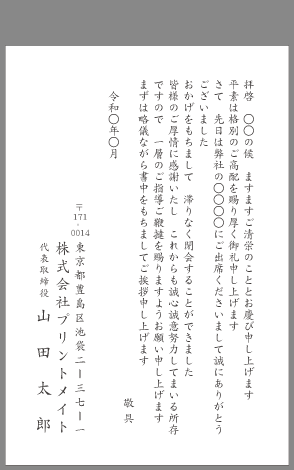 拝啓　〇〇の候　ますますご清栄のこととお慶び申し上げます
平素は格別のご高配を賜り厚く御礼申し上げます
さて　先日は弊社の〇〇〇〇にご出席くださいまして誠にありがとう
ございました
おかげをもちまして　滞りなく閉会することができました
皆様のご厚情に感謝いたし　これからも誠心誠意努力してまいる所存
ですので　一層のご指導ご鞭撻を賜りますようお願い申し上げます
まずは略儀ながら書中をもちましてご挨拶申し上げます
敬具
令和〇年〇月
〒171-0014
東京都豊島区池袋二ー三七ー一
株式会社プリントメイト
代表取締役　山田太郎